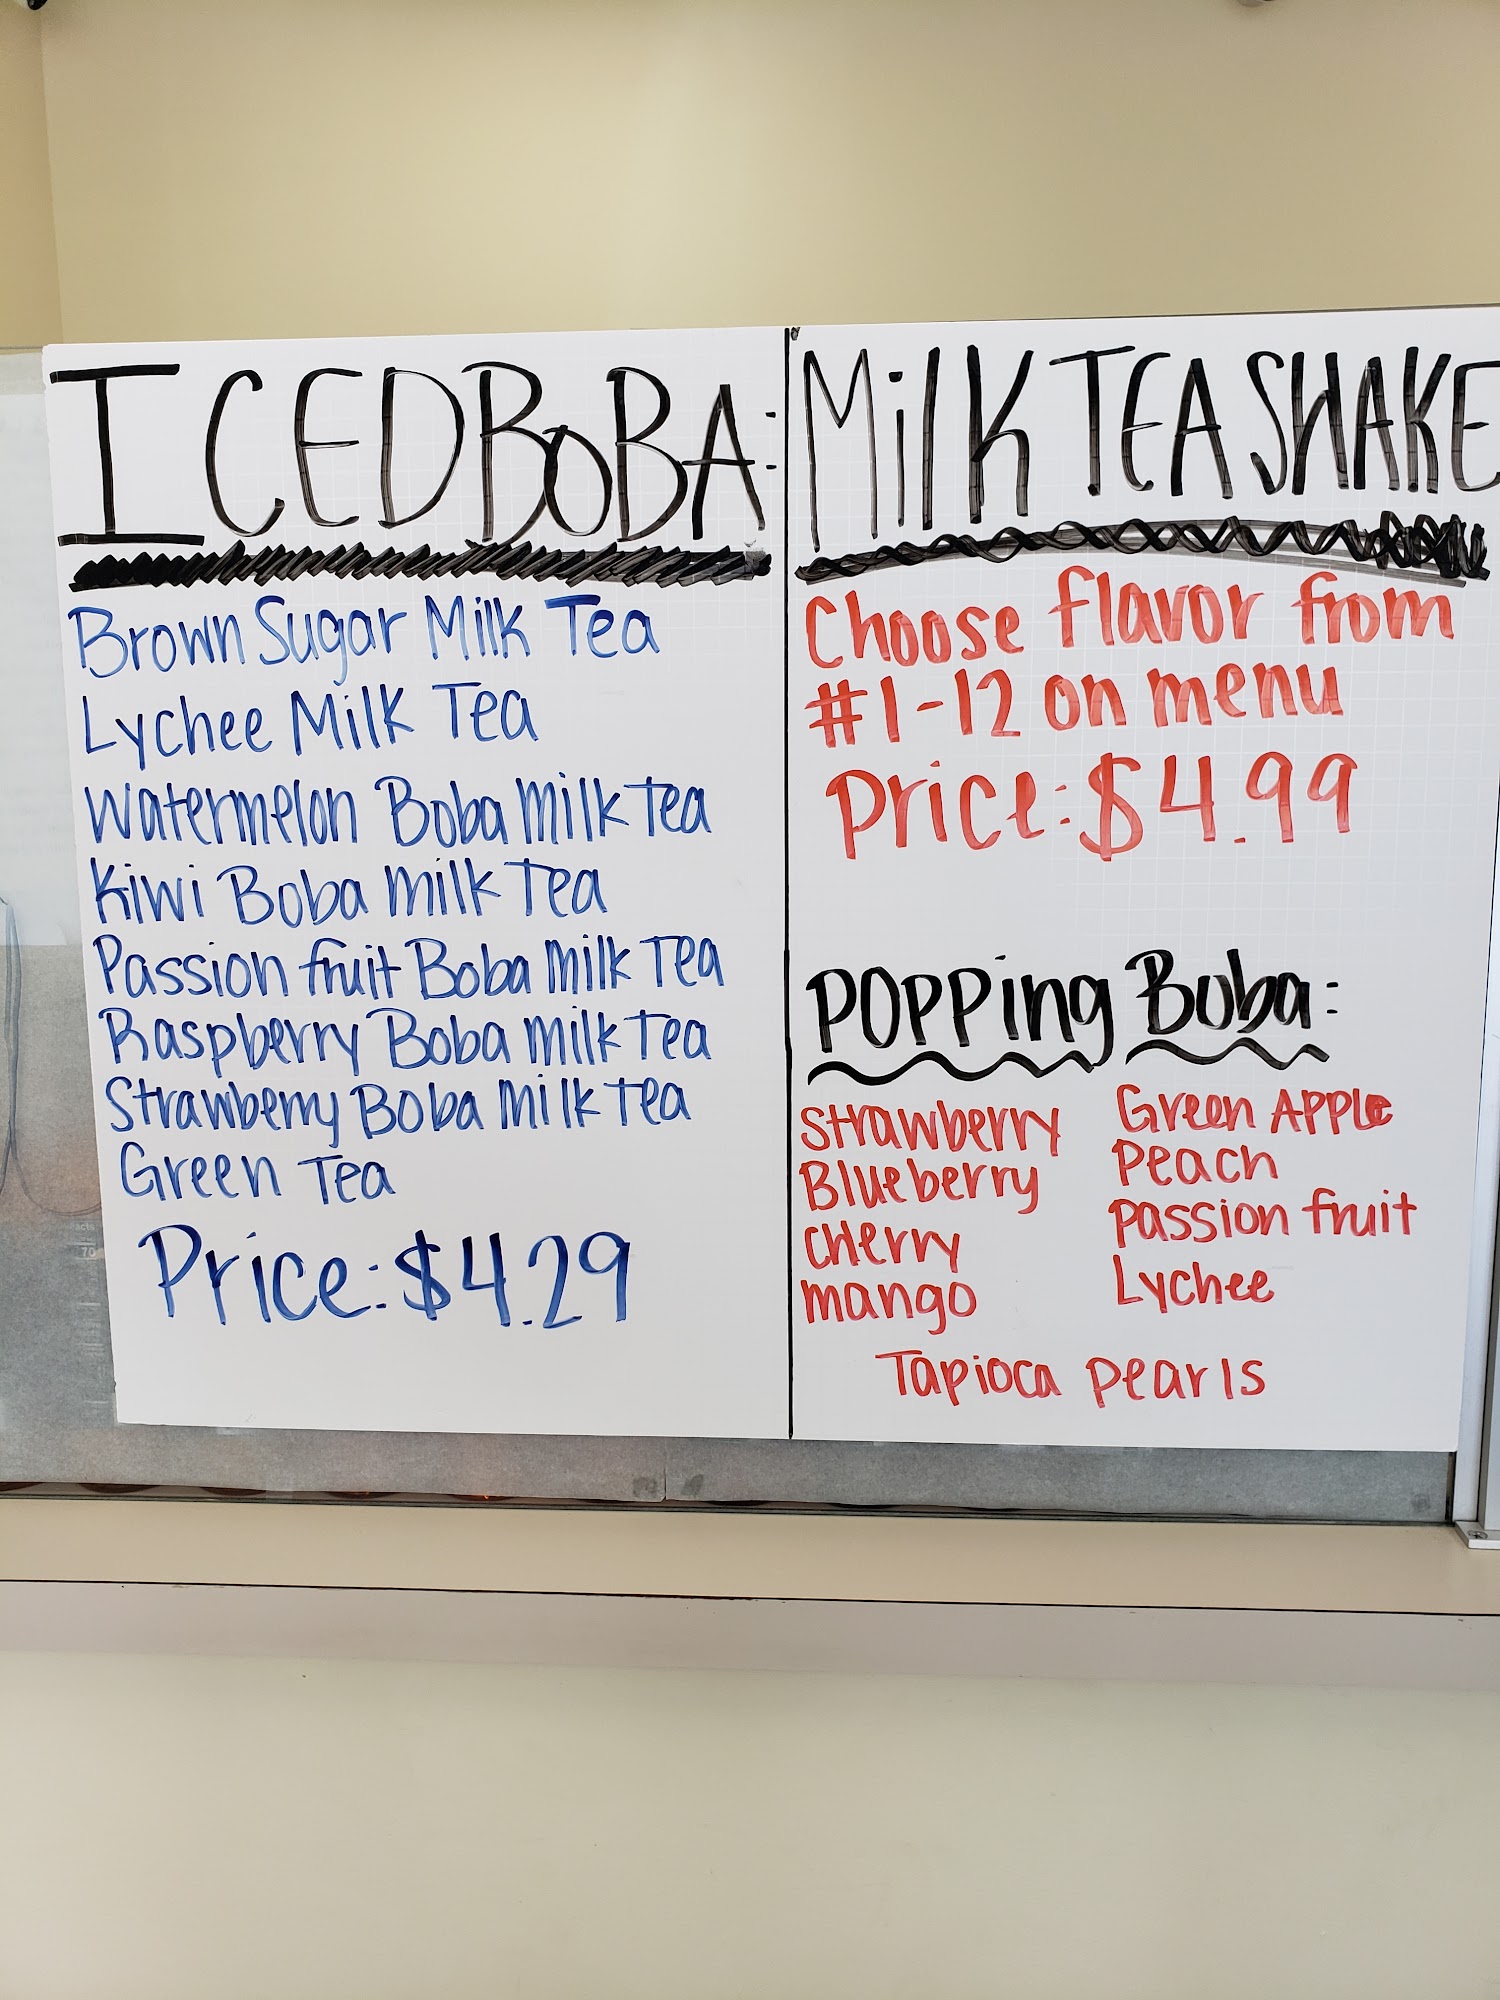 ICED BOBA:
Brown Sugar Milk Tea
Lychee Milk Tea
Watermelon Boba Milk Tea
Kiwi Boba Milk Tea
Passion fruit Boba Milk Tea
Raspberry Boba Milk Tea
Strawberry Boba Milk Tea
Green Tea
Price: $4.29
MilK TEA SHAKE
Choose flavor from
#1-12 on menu
Price: $4.99
POPPing Boba:
Strawberry
Blueberry
Cherry
mango
Green Apple
Peach
Passion fruit
Lychee
Tapioca pearls
70